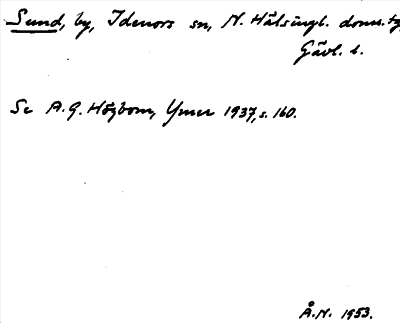 Sund, by, Idenors sn, N. Hälsingl. doms.
Gävl. l.
Se A.G. Högbom, Ymer 1937, s. 160.
Å.N. 1953.